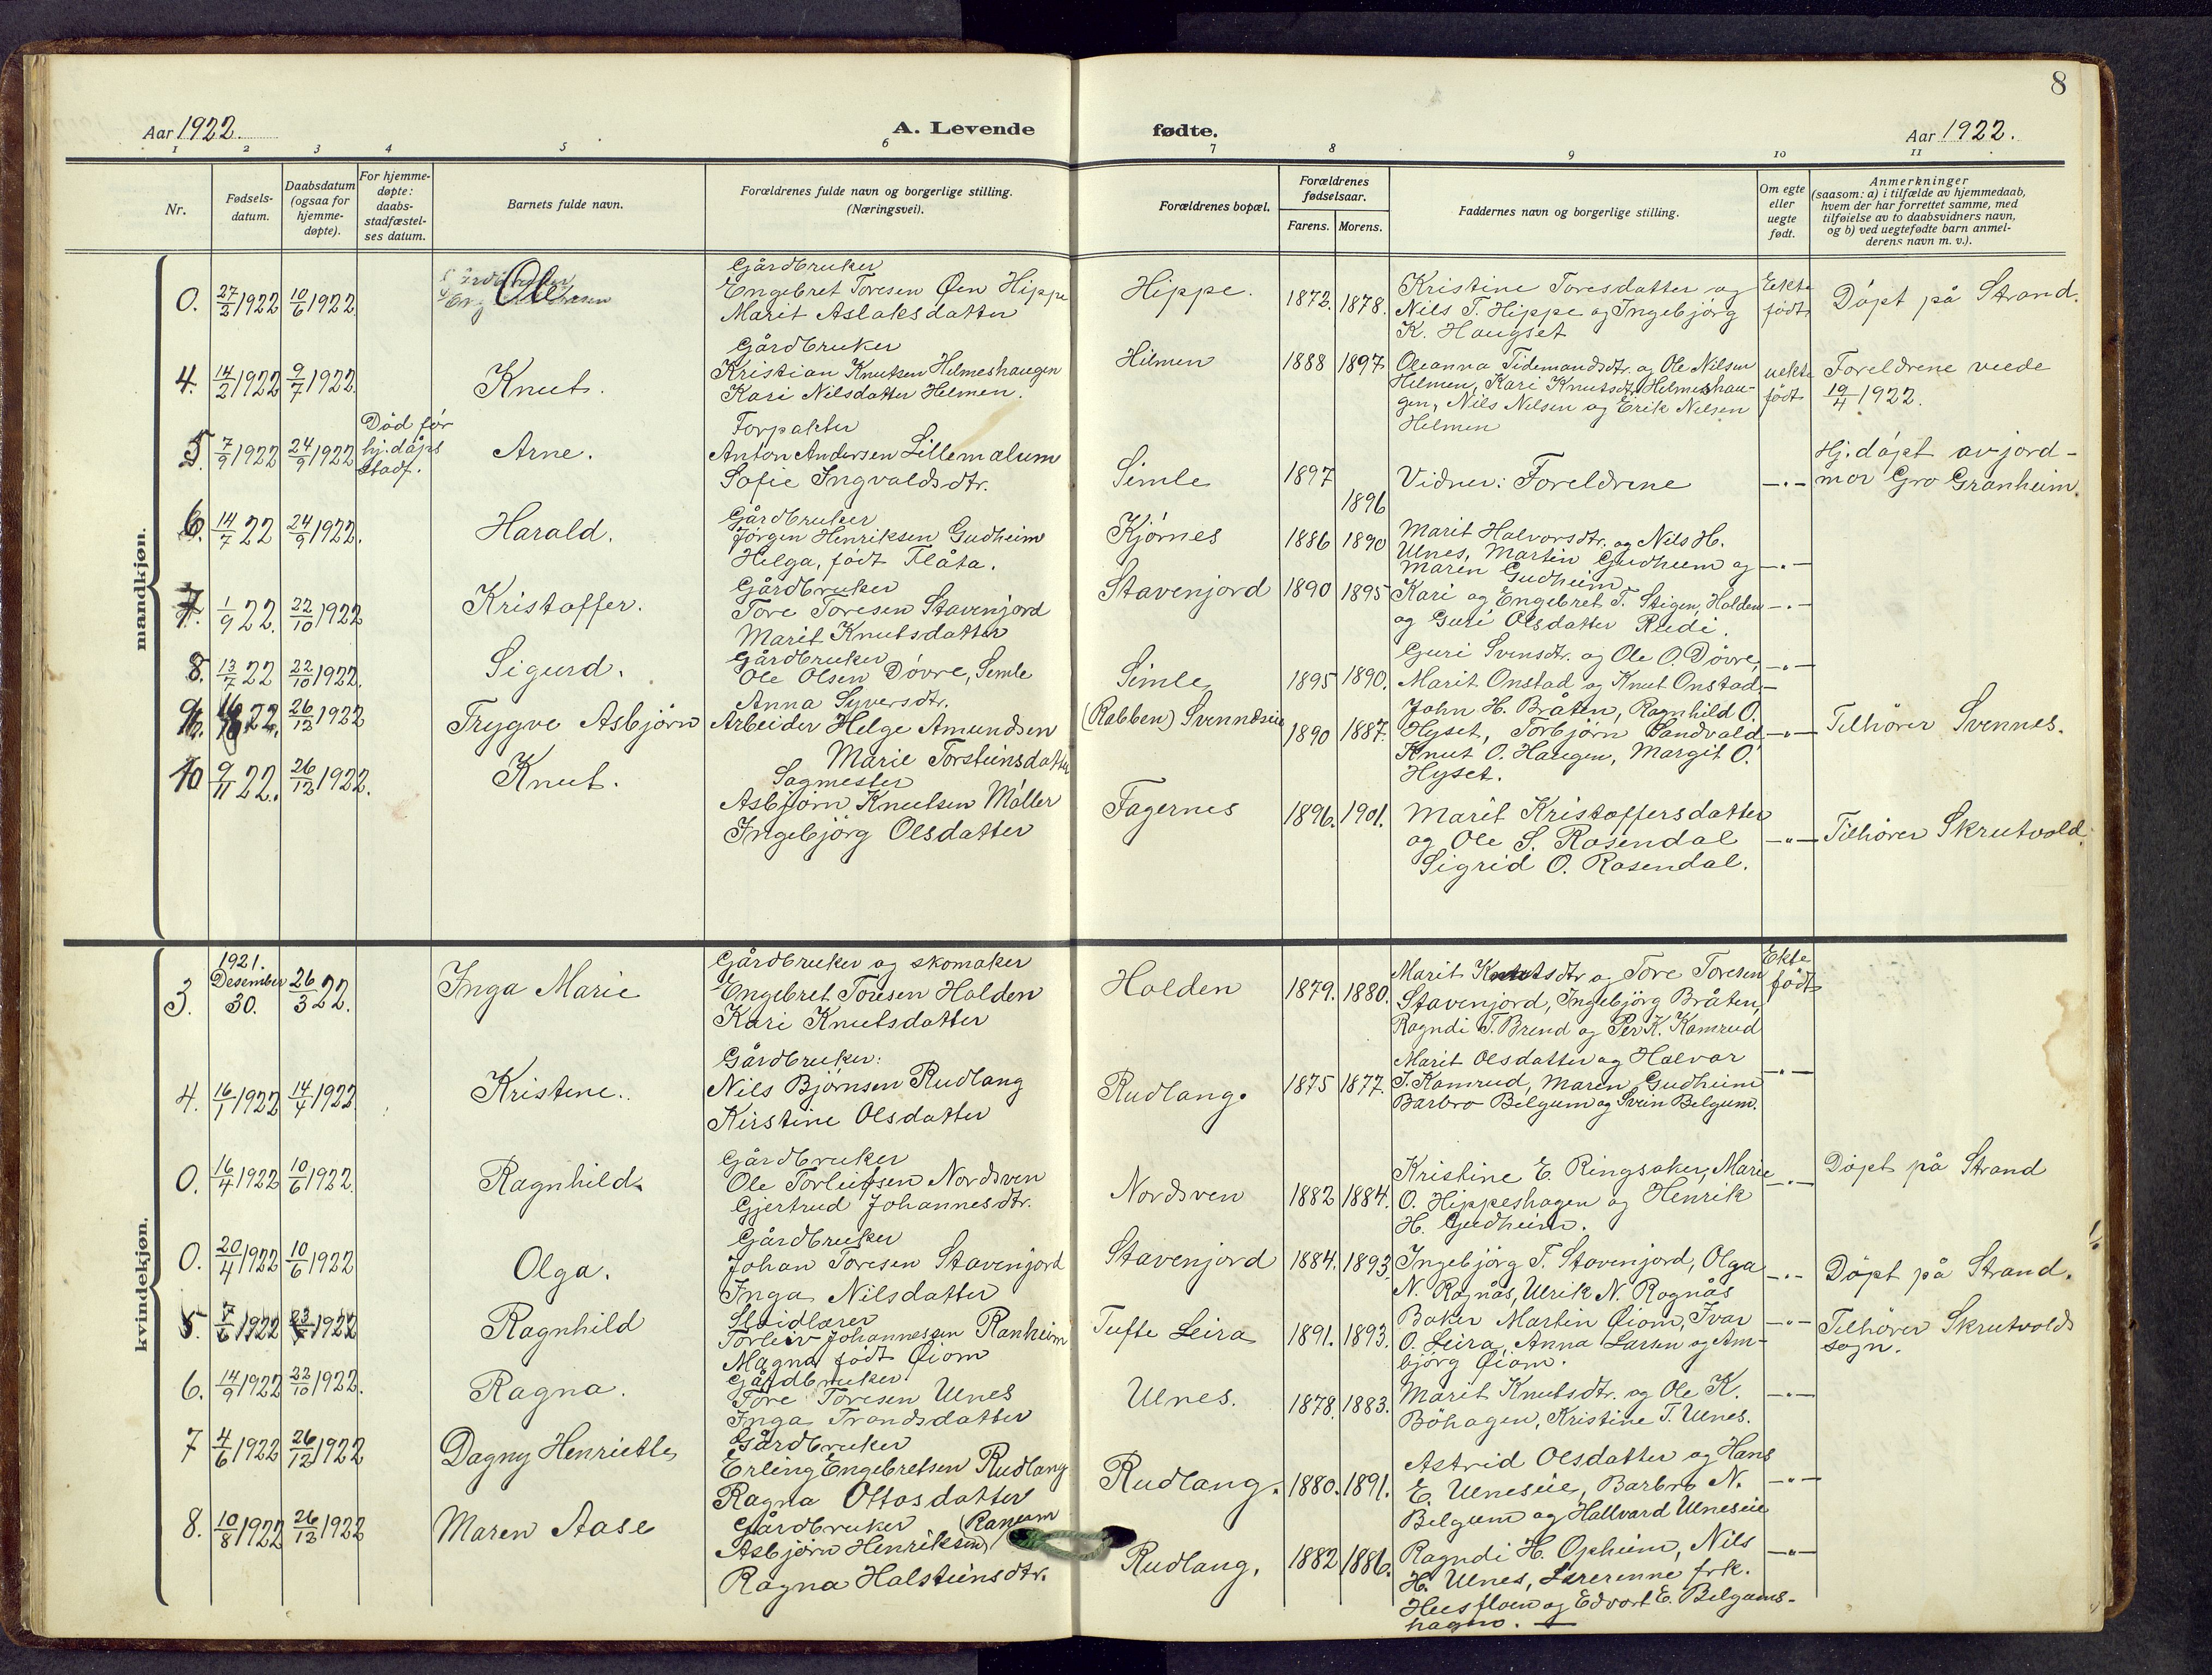 8
Aar 1922.
A. Levende fødte.
Aar 1922.
1 2 3 4 5 6 7 8 9 10 11
Nr.
Fødsels-
datum.
Daabsdatum
(ogsaa for
hjemme-
døpte).
For hjemme-
døpte:
daabs-
stadfæstel-
ses datum.
Barnets fulde navn.
Forældrenes fulde navn og borgerlige stilling.
(Næringsvei).
Forældrenes bopæl.
Forældrenes
fødselsaar.
Farens. Morens.
Faddernes navn og borgerlige stilling.
Om egte
eller
uegte
født.
Anmerkninger
(saasom: a) i tilfælde av hjemmedaab,
hvem der har forrettet samme, med
tilføielse av to daabsvidners navn,
og b) ved uegtefødte barn anmel-
derens navn m. v.).
mandkjøn.
0. 27/2 1922 10/6 1922. Ole
Gårdbruker
Engebret Toresen Øen Hippe
Marit Aslaksdatter
Hippe. 1872. 1878.
Kristine Toresdatter og
Nils T. Hippe og Ingebjörg
K. Haugset
Ekte
født
Döpt på Strand.
4. 14/2 1922 9/7 1922. Knut.
Gårdbruker
Kristian Knutsen Hilmeshaugen
Kari Nilsdatter Hilmen.
Hilmen 1888 1897
Oleanna Tidemandsdtr. og Ole Nilsen
Hilmen, Kari Knutsdtr. Hilmeshau-
gen, Nils Nilsen og Erik Nilsen
Hilmen
uekte
født
Foreldrene viede
19/4 1922.
5. 7/9 1922 24/9 1922
Död før
hj. dåps
stadf.
Arne.
Forpakter
Anton Andersen Lillemælum
Sofie Ingvaldsdtr.
Simle 1897 1896
Vidner: Foreldrene
—„—
Hj. döpt av jord-
mor Gro Granheim.
6. 14/7 22 24/9 1922. Harald.
Gårdbruker
Jörgen Henriksen Gudheim
Helga, født Flåta.
Kjörnes 1886 1890
Marit Halvorsdtr. og Nils H.
Ulnes, Martin Gudheim og
Maren Gudheim.
—„—
7. 1/9 22. 22/10 1922 Kristoffer.
Gårdbruker
Tore Toresen Stavenjord
Marit Knutsdatter
Stavenjord 1890 1895
Kari og Engebret T. Stigen, Holden
og Guri Olsdatter Rudi.
—„—
8. 13/7 22 22/10 1922. Sigurd.
Gårdbruker
Ole Olsen Dövre, Simle
Anna Syversdtr.
Simle 1895 1890.
Guri Svensdtr. og Ole O. Dövre,
Marit Onstad og Knut Onstad
—„—
9. 22. 26/12 1922 Trygve Asbjörn
Arbeider Helge Amundsen
Marie Torsteinsdatter
(Robben) Svenneseie 1890 1887.
John H. Bråten, Ragnhild O.
Hyset, Torbjörn Sandvold
Knut O. Haugen, Margit O.
Hyset.
—„—
Tilhörer Svennes.
10 9/11 22. 26/12 1922. Knut.
Sagmester
Asbjörn Knutsen Möller
Ingebjörg Olsdatter
Fagernes 1896. 1901.
Marit Kristoffersdatter
og Ole S. Rosendal
Sigrid O. Rosendal.
—„—
Tilhörer Skrutvold.
kvindekjøn.
3.
1921.
Desember
30.
26/3 22. Inga Marie
Gårdbruker og skomaker
Engebret Toresen Holden
Kari Knutsdatter
Holden 1879. 1880.
Marit Knutsdtr og Tore Toresen
Stavenjord, Ingebjörg Bråten,
Ragndi T. Brend og Per K. Kamrud
Ekte
født
4. 16/1 1922 14/4 1922 Kristine.
Gårdbruker:
Nils Björnsen Rudlang
Kirstine Olsdatter
Rudlang. 1875 1877.
Marit Olsdatter og Halvor
J. Kamrud, Maren Gudheim
Barbro Belgum og Svein Belgum.
—„—
0. 16/4 1922 10/6 1922. Ragnhild
Gårdbruker
Ole Torleifsen Nordsven
Gjertrud Johannesdtr.
Nordsven 1882 1884.
Kristine E. Ringsaker, Marie
O. Hippeshagen og Henrik
H. Gudheim.
—„—
Döpt på Strand
0. 20/4 1922 10/6 1922 Olga.
Gårdbruker
Johan Toresen Stavenjord
Inga Nilsdatter
Stavenjord 1884. 1893.
Ingebjörg T. Stavenjord, Olga
N. Rognås, Ulrik N. Rognås
—„—
Döpt på Strand.
5. 1922 1922 Ragnhild
Sløidlærer
Torleiv Johannessen Ranheim
Magna født Øiom
Tufte Leira 1891. 1893.
Baker Martin Øiom, Ivar
O. Leira, Anna Larsen og Am-
björg Øiom.
—„—
Tilhörer Skrutvolds
sogn.
6. 14/9 1922 22/10 1922. Ragna.
Gårdbruker
Tore Toresen Ulnes
Inga Trondsdatter
Ulnes. 1878. 1883.
Marit Knutsdtr. og Ole K.
Böhagen, Kristine T. Ulnes.
—„—
7 4/6 1922 26/12 1922 Dagny Henriette
Gårdbruker
Erling Engebretsen Rudlang
Ragna Ottosdatter
Rudlang. 1880. 1891.
Astrid Olsdatter og Hans
E. Ulneseie, Barbro N.
Belgum og Hallvard Ulneseie
—„—
8. 10/8 1922 26/12 1922 Maren Aase
Gårdbruker
Asbjörn Henriksen
Ragna Halsteinsdtr.
Rudlang. 1882 1886.
Ragndi H. Opheim, Nils
H. Ulnes, Lærerinne frk.
Husfloen og Edvart E. Belgums-
hagen. —
—„—